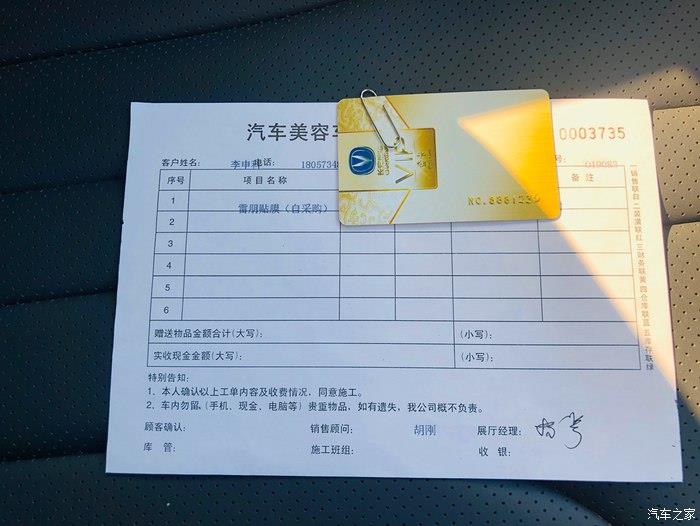 汽车美容 0003735
客户姓名: 李申 电话: 1805734 号: 019083
序号 项目名称 备注
1
雷朋贴膜（自采购）
2
3
4
5
6
赠送物品金额合计(大写): (小写):
实收现金金额(大写): (小写):
特别告知:
1、本人确认以上工单内容及收费情况，同意施工。
2、车内勿留(手机、现金、电脑等)贵重物品，如有遗失，我公司概不负责。
顾客确认: 销售顾问: 胡刚 展厅经理:
库管: 施工班组: 收银:
销售联白 二装潢联红 三财务联黄 四仓库联蓝 五库存联绿
长安汽车
VIP
NO.
汽车之家